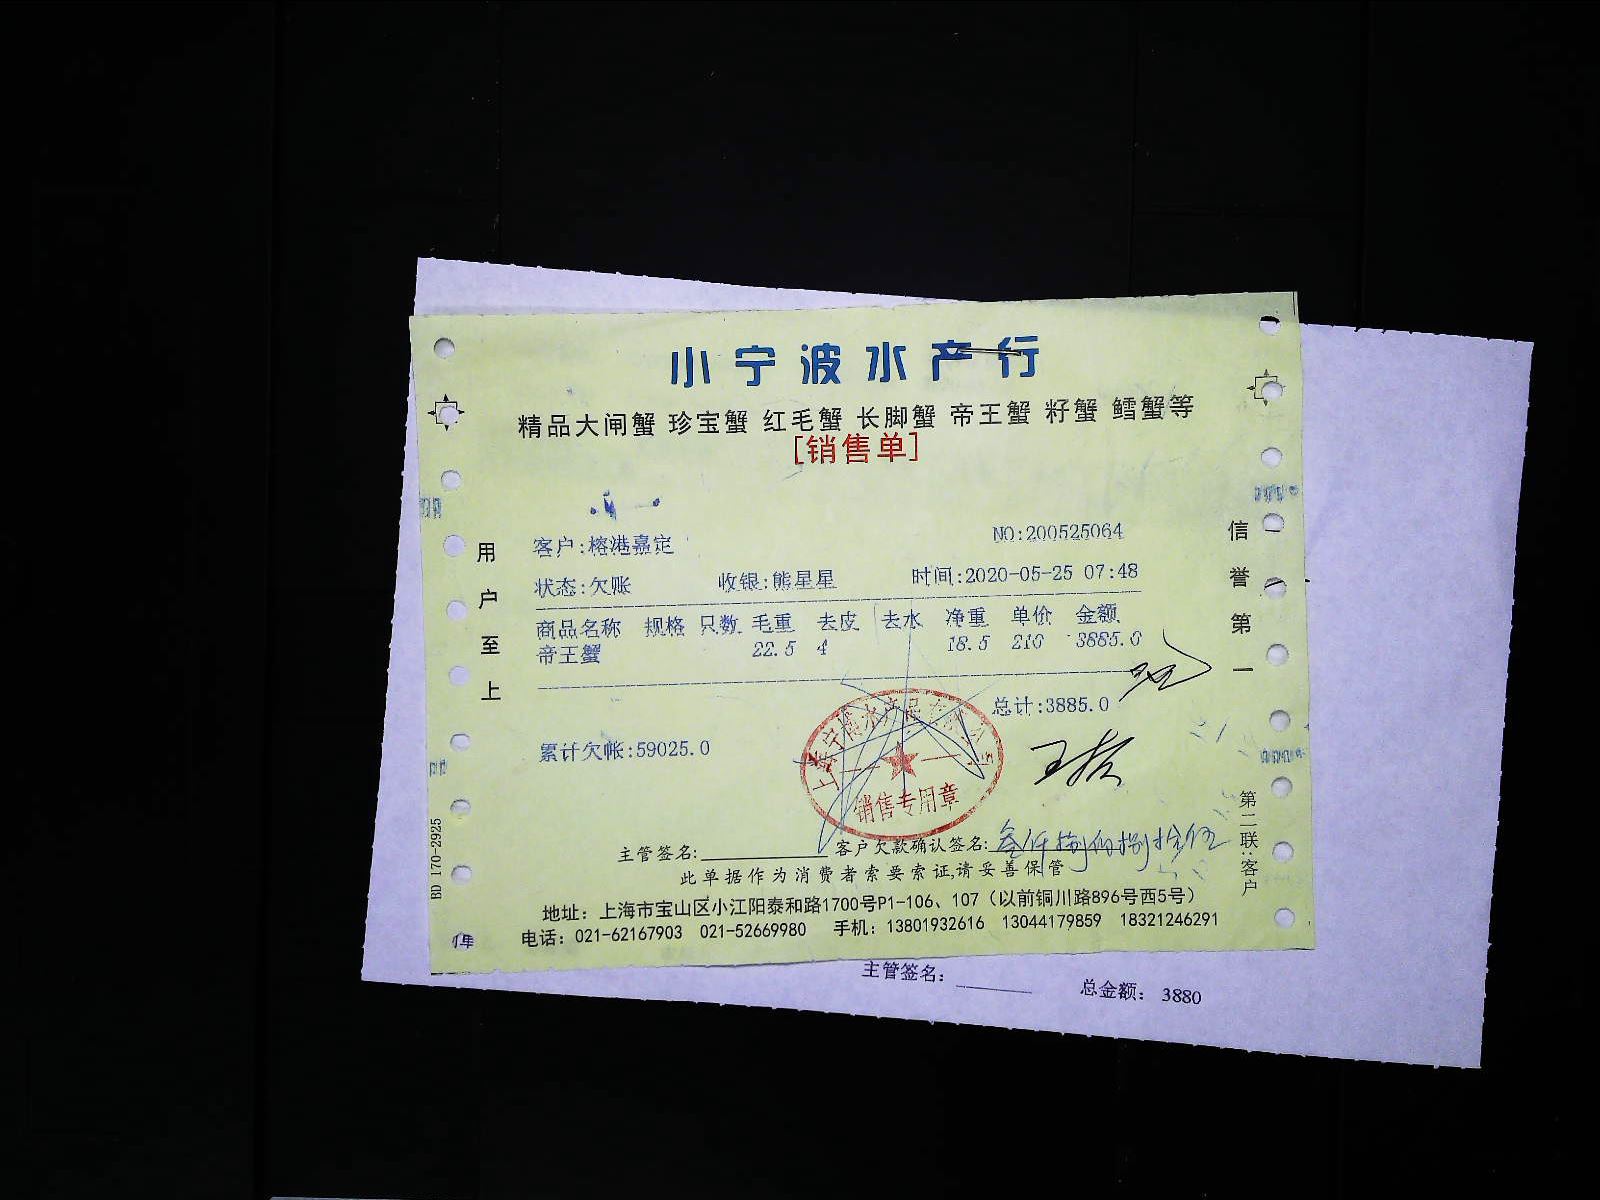 小宁波水产行
精品大闸蟹 珍宝蟹 红毛蟹 长脚蟹 帝王蟹 籽蟹 鳕蟹等
[销售单]
NO:200525064
客户:榕港嘉定
状态:欠账 收银:熊星星 时间:2020-05-25 07:48
商品名称 规格 只数 毛重 去皮 去水 净重 单价 金额
帝王蟹 22.5 4 18.5 210 3885.0
总计:3885.0
累计欠帐:59025.0
销售专用章
主管签名: 客户欠款确认签名:叁仟捌佰捌拾伍
此单据作为消费者索要索证,请妥善保管
地址：上海市宝山区小江阳泰和路1700号P1-106、107（以前铜川路896号西5号）
电话：021-62167903 021-52669980 手机：13801932616 13044179859 18321246291
用户至上
信誉第一
第二联:客户
BD 170-2925
主管签名：
总金额： 3880